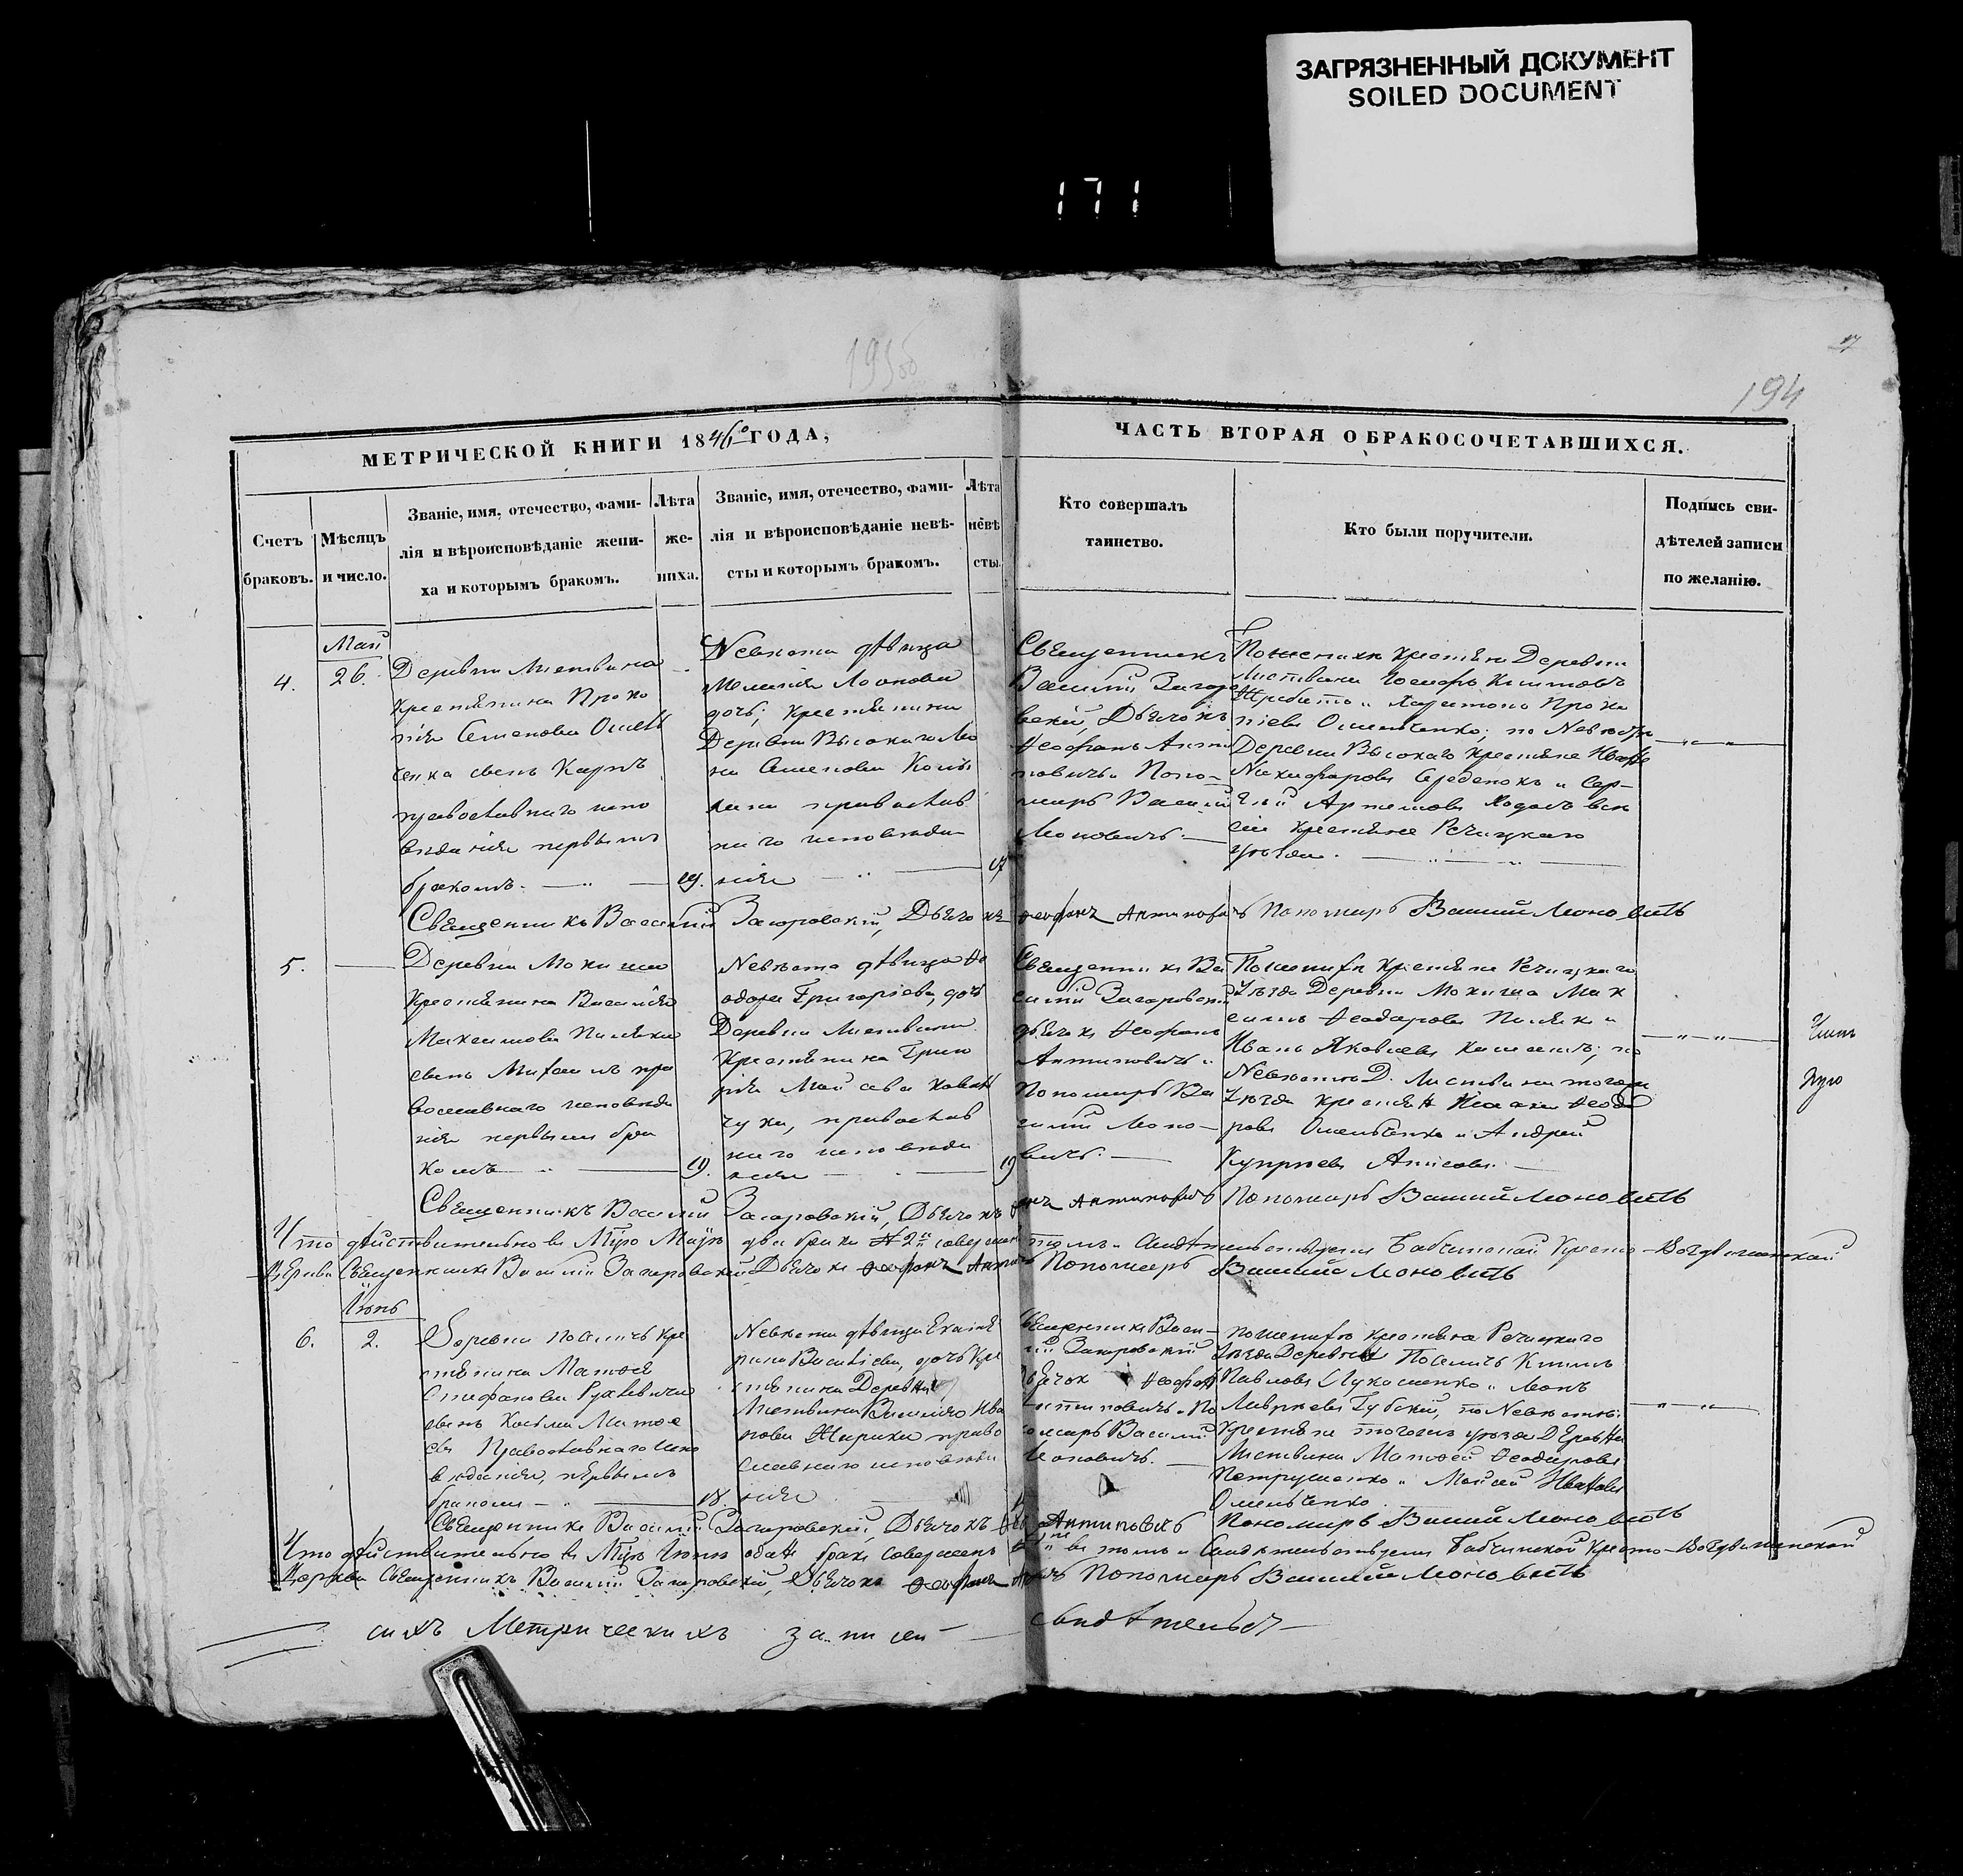 ЗАГРЯЗНЕННЫЙ ДОКУМЕНТ
SOILED DOCUMENT
171
193об
194
МЕТРИЧЕСКОЙ КНИГИ 1846го ГОДА,
ЧАСТЬ ВТОРАЯ О БРАКОСОЧЕТАВШИХСЯ.
Счетъ
браковъ.
Мѣсяцъ
и число.
Званіе, имя, отечество, фами-
лія и вѣроисповѣданіе жени-
ха и которымъ бракомъ.
Лѣта
же-
ниха.
Званіе, имя, отечество, фами-
лія и вѣроисповѣданіе невѣ-
сты и которымъ бракомъ.
Лѣта
невѣ
сты.
Кто совершалъ
таинство.
Кто были поручители.
Подпись сви-
дѣтелей записи
по желанію.
4.
Май
26.
Деревни Листвина
крестянина Проко
пія Семенова Омель
ченка сынъ Карпъ
православнаго испо
веданія первымъ
бракомъ.
19.
Невѣста дѣвица
Меланія Леонова
дочь, крестянина
Деревни Высокаго Лео
на Семенова
православ
наго исповеда
нія
17
Священникъ
Василій Загоро
вскій, Дьячокъ
Ѳеофанъ Анти
повичъ и Поно-
марь Василій
Леоновичъ.
По женихѣ крестяне Деревни
Листвина Іосифъ
и Харитонъ Проко
піевъ Омельченко; по Невѣстѣ
Деревни Высокаго крестяне
Никифоровъ и Сер-
гѣй Артемовъ
сіи крестяне Речицкаго
уѣзда.
Священникъ Василій Загоровскій, Дьячокъ Ѳеофанъ Антиповичъ Пономарь Василій Леоновичъ
5.
Деревни Мокиша
Крестянина Василія
Максимова Поляка
сынъ Михаилъ пра
вославнаго исповеда
нія первымъ бра
комъ
19.
Невѣста дѣвица Ѳе
одора Григоріева, дочь
Деревни Листвина
Крестянина Григо
рія
православ
наго исповеда
нія
19
Священникъ Ва
силій Загоровскій
дьячокъ Ѳеофанъ
Антиповичъ и
Пономарь Ва
силій Леоно-
вичъ.
По женихѣ крестяне Речицкаго
уѣзда Деревни Мокиша Мак
симъ Ѳеодоровъ Поляк и
Иванъ Яковлевъ по
Невѣстѣ Д. Листвина тогожъ
уѣзда крестяне Ѳеодо
ровъ Омельченко и Андрей
Купріевъ
Священникъ Василій Загоровскій, Дьячокъ Антиповичъ Пономарь Василій Леоновичъ
Что дѣйствительно въ Мцѣ Маіѣ два брака № 2й совершено въ томъ и Свидѣтельствуемъ Бабчинской Кресто-Воздвиженской
Церкви Священникъ Василій Загоровскій Дьячокъ Ѳеофанъ Пономарь Василій Леоновичъ
6.
Іюнь
2.
Деревни Посѣличъ кре
стянина Матѳея
Стефанова
сынъ Косьма Матѳе
евъ Православнаго испо
веданія, первымъ
бракомъ
18.
Невѣста дѣвица Екате
рина Василіева, дочь кре
стянина Деревни
Листвина Василія Ива
нова Жирика право
славнаго исповеда
нія
Священникъ Васи-
лій Загоровскій
Дьячок Ѳеофан
Антиповичъ и По
номарь Василій
Леоновичъ.
По женихѣ крестяне Речицкаго
уѣзда Деревни Посѣличъ Климъ
Павловъ Лукашенко и Леонъ
Лаврѣевъ Губскій, по Невѣстѣ:
Крестяне тогожъ уѣзда Деревни
Листвина Матѳей Ѳеодоровъ
Петрушенко и Моисей Ивановъ
Омельченко
Священникъ Василій Загоровскій, Дьячокъ Антиповичъ Пономарь Василій Леоновичъ
Что дѣйствительно въ Мцѣ Іюнѣ одинъ бракъ совершенъ въ томъ и Свидѣтельствуемъ Бабчинской Кресто-Воздвиженской
Церкви Священникъ Василій Загоровскій, Дьячокъ Ѳеофанъ Пономарь Василій Леоновичъ
сихъ Метрическихъ записей свидѣтельст